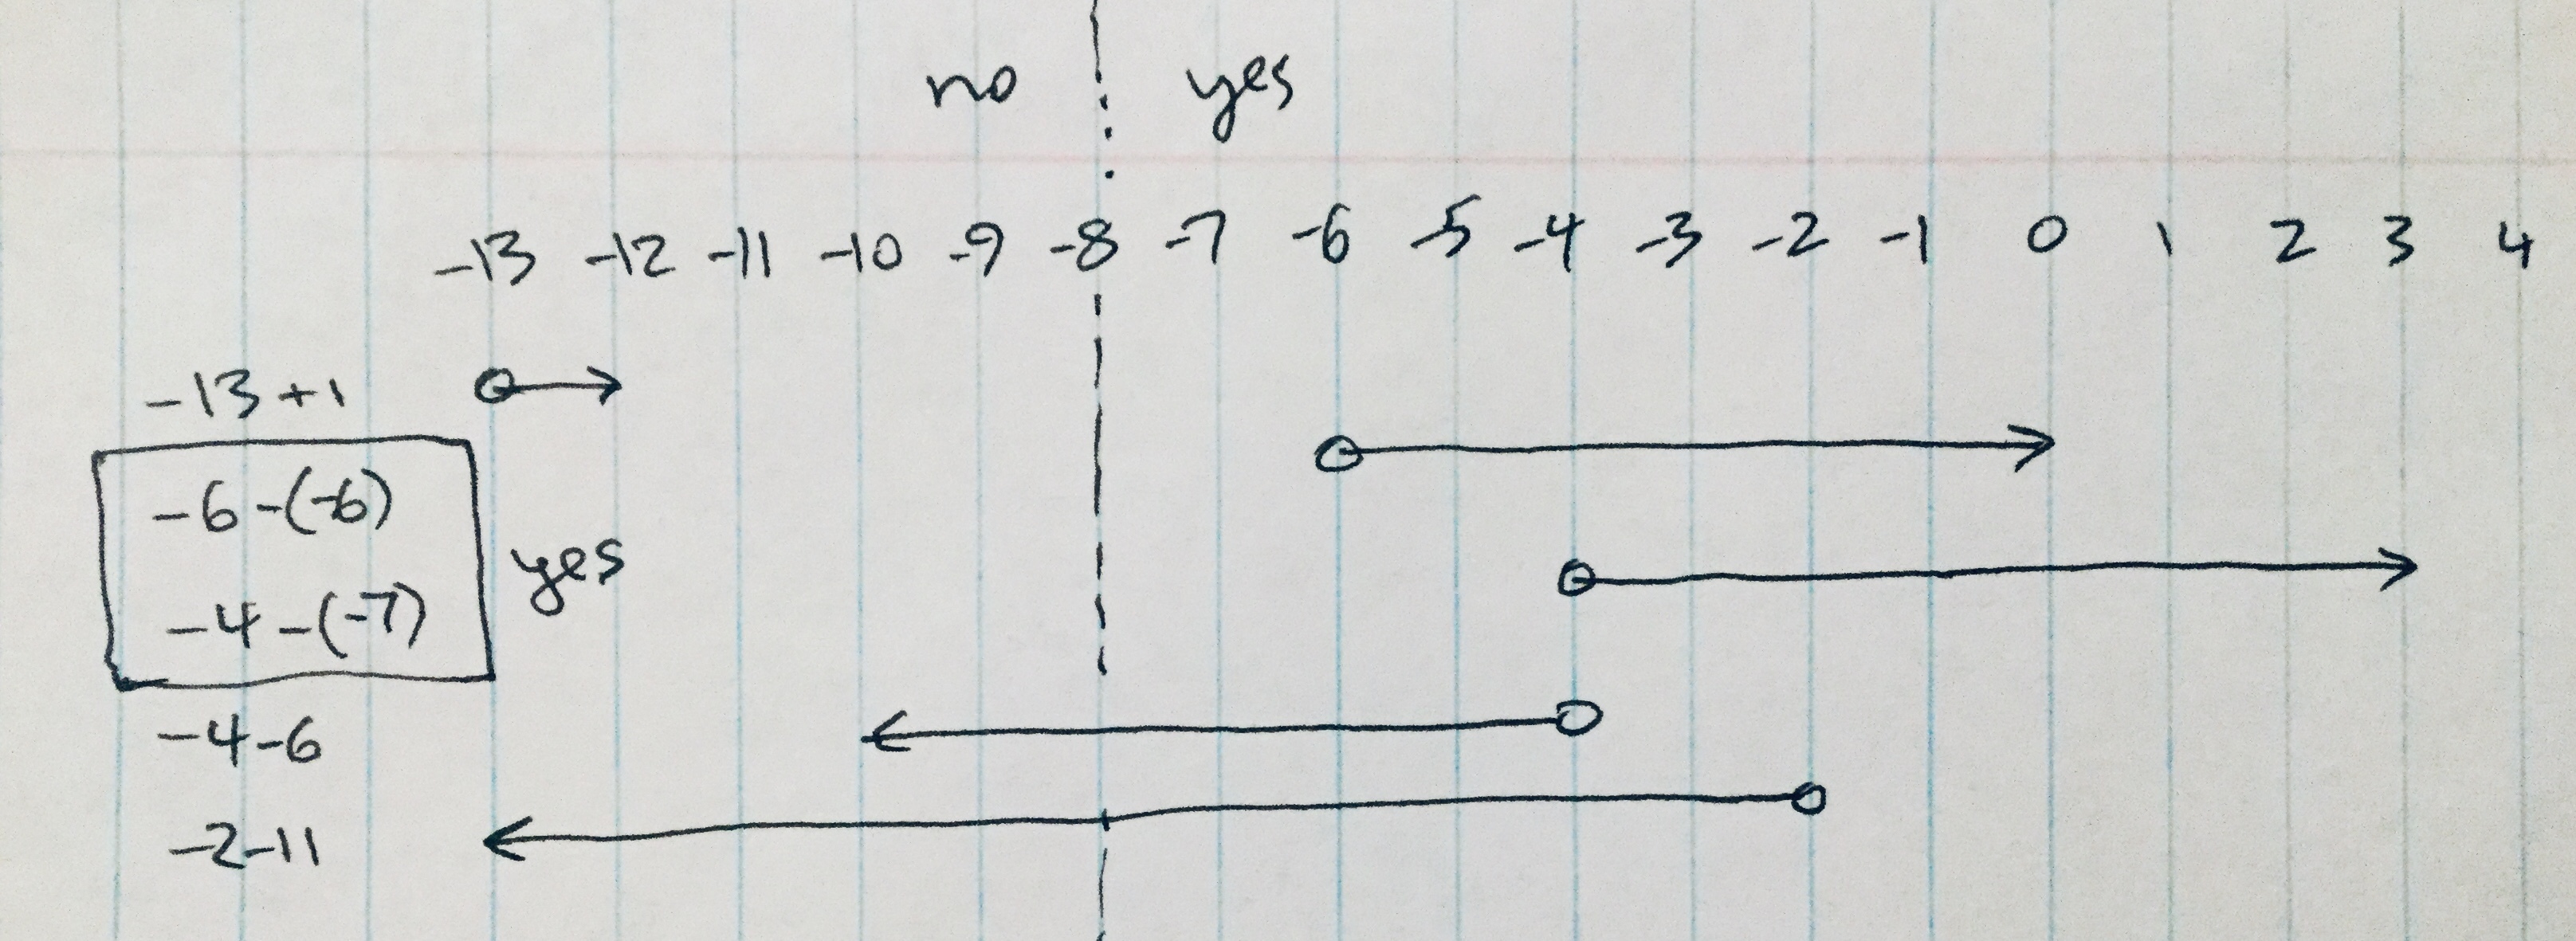 no yes
-13 -12 -11 -10 -9 -8 -7 -6 -5 -4 -3 -2 -1 0 1 2 3 4
-13+1
-6-(-6)
yes
-4-(-7)
-4-6
-2-11